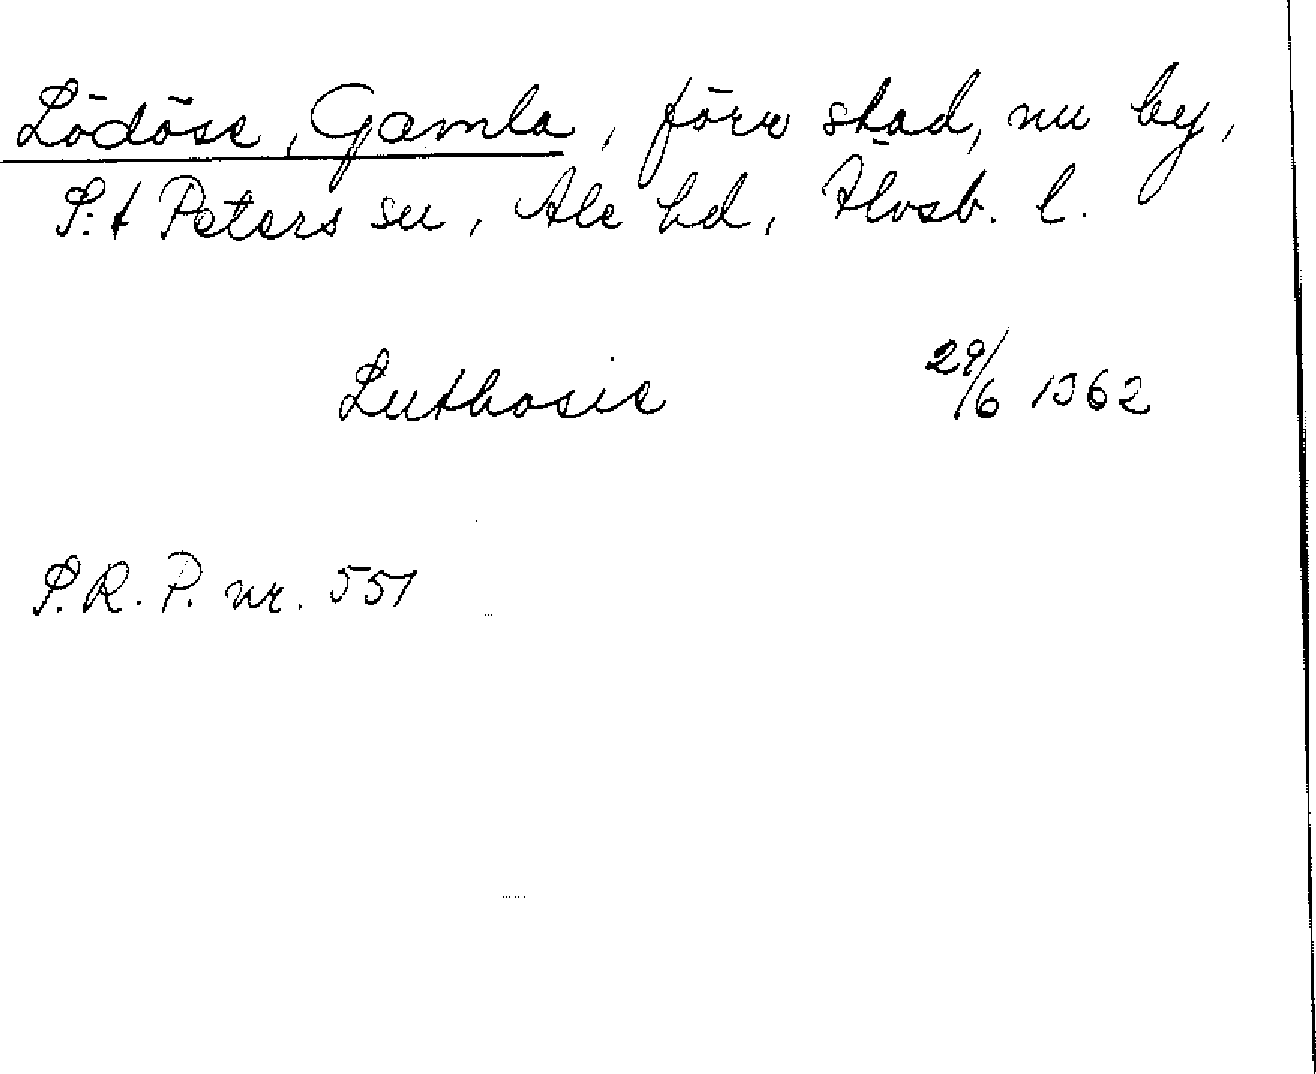 Lödöse, Gamla, förr stad, nu by,
S:t Peters sn, Ale hd, Älvsb. l.
Luthosie 29/6 1362
S.R.P. nr. 551